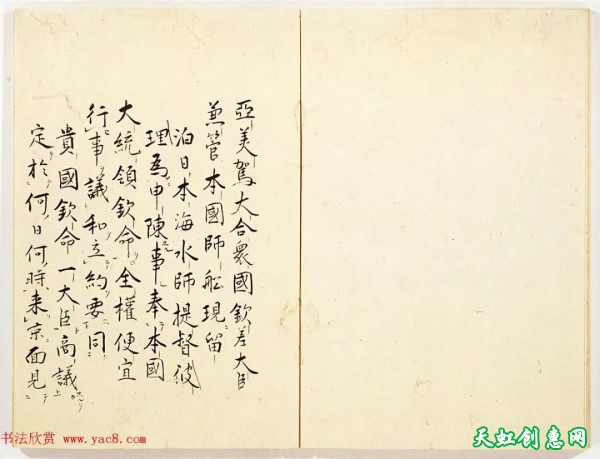 亞美駕大合衆國欽差大臣
兼管本國師舩現留
泊日本海水師提督彼
理為申陳事奉本國
大統領欽命全權便宜
行事議和立約要同
貴國欽命一大臣商議
定於何日何時来京面見
书法欣赏 www.yac8.com
天虹创惠网